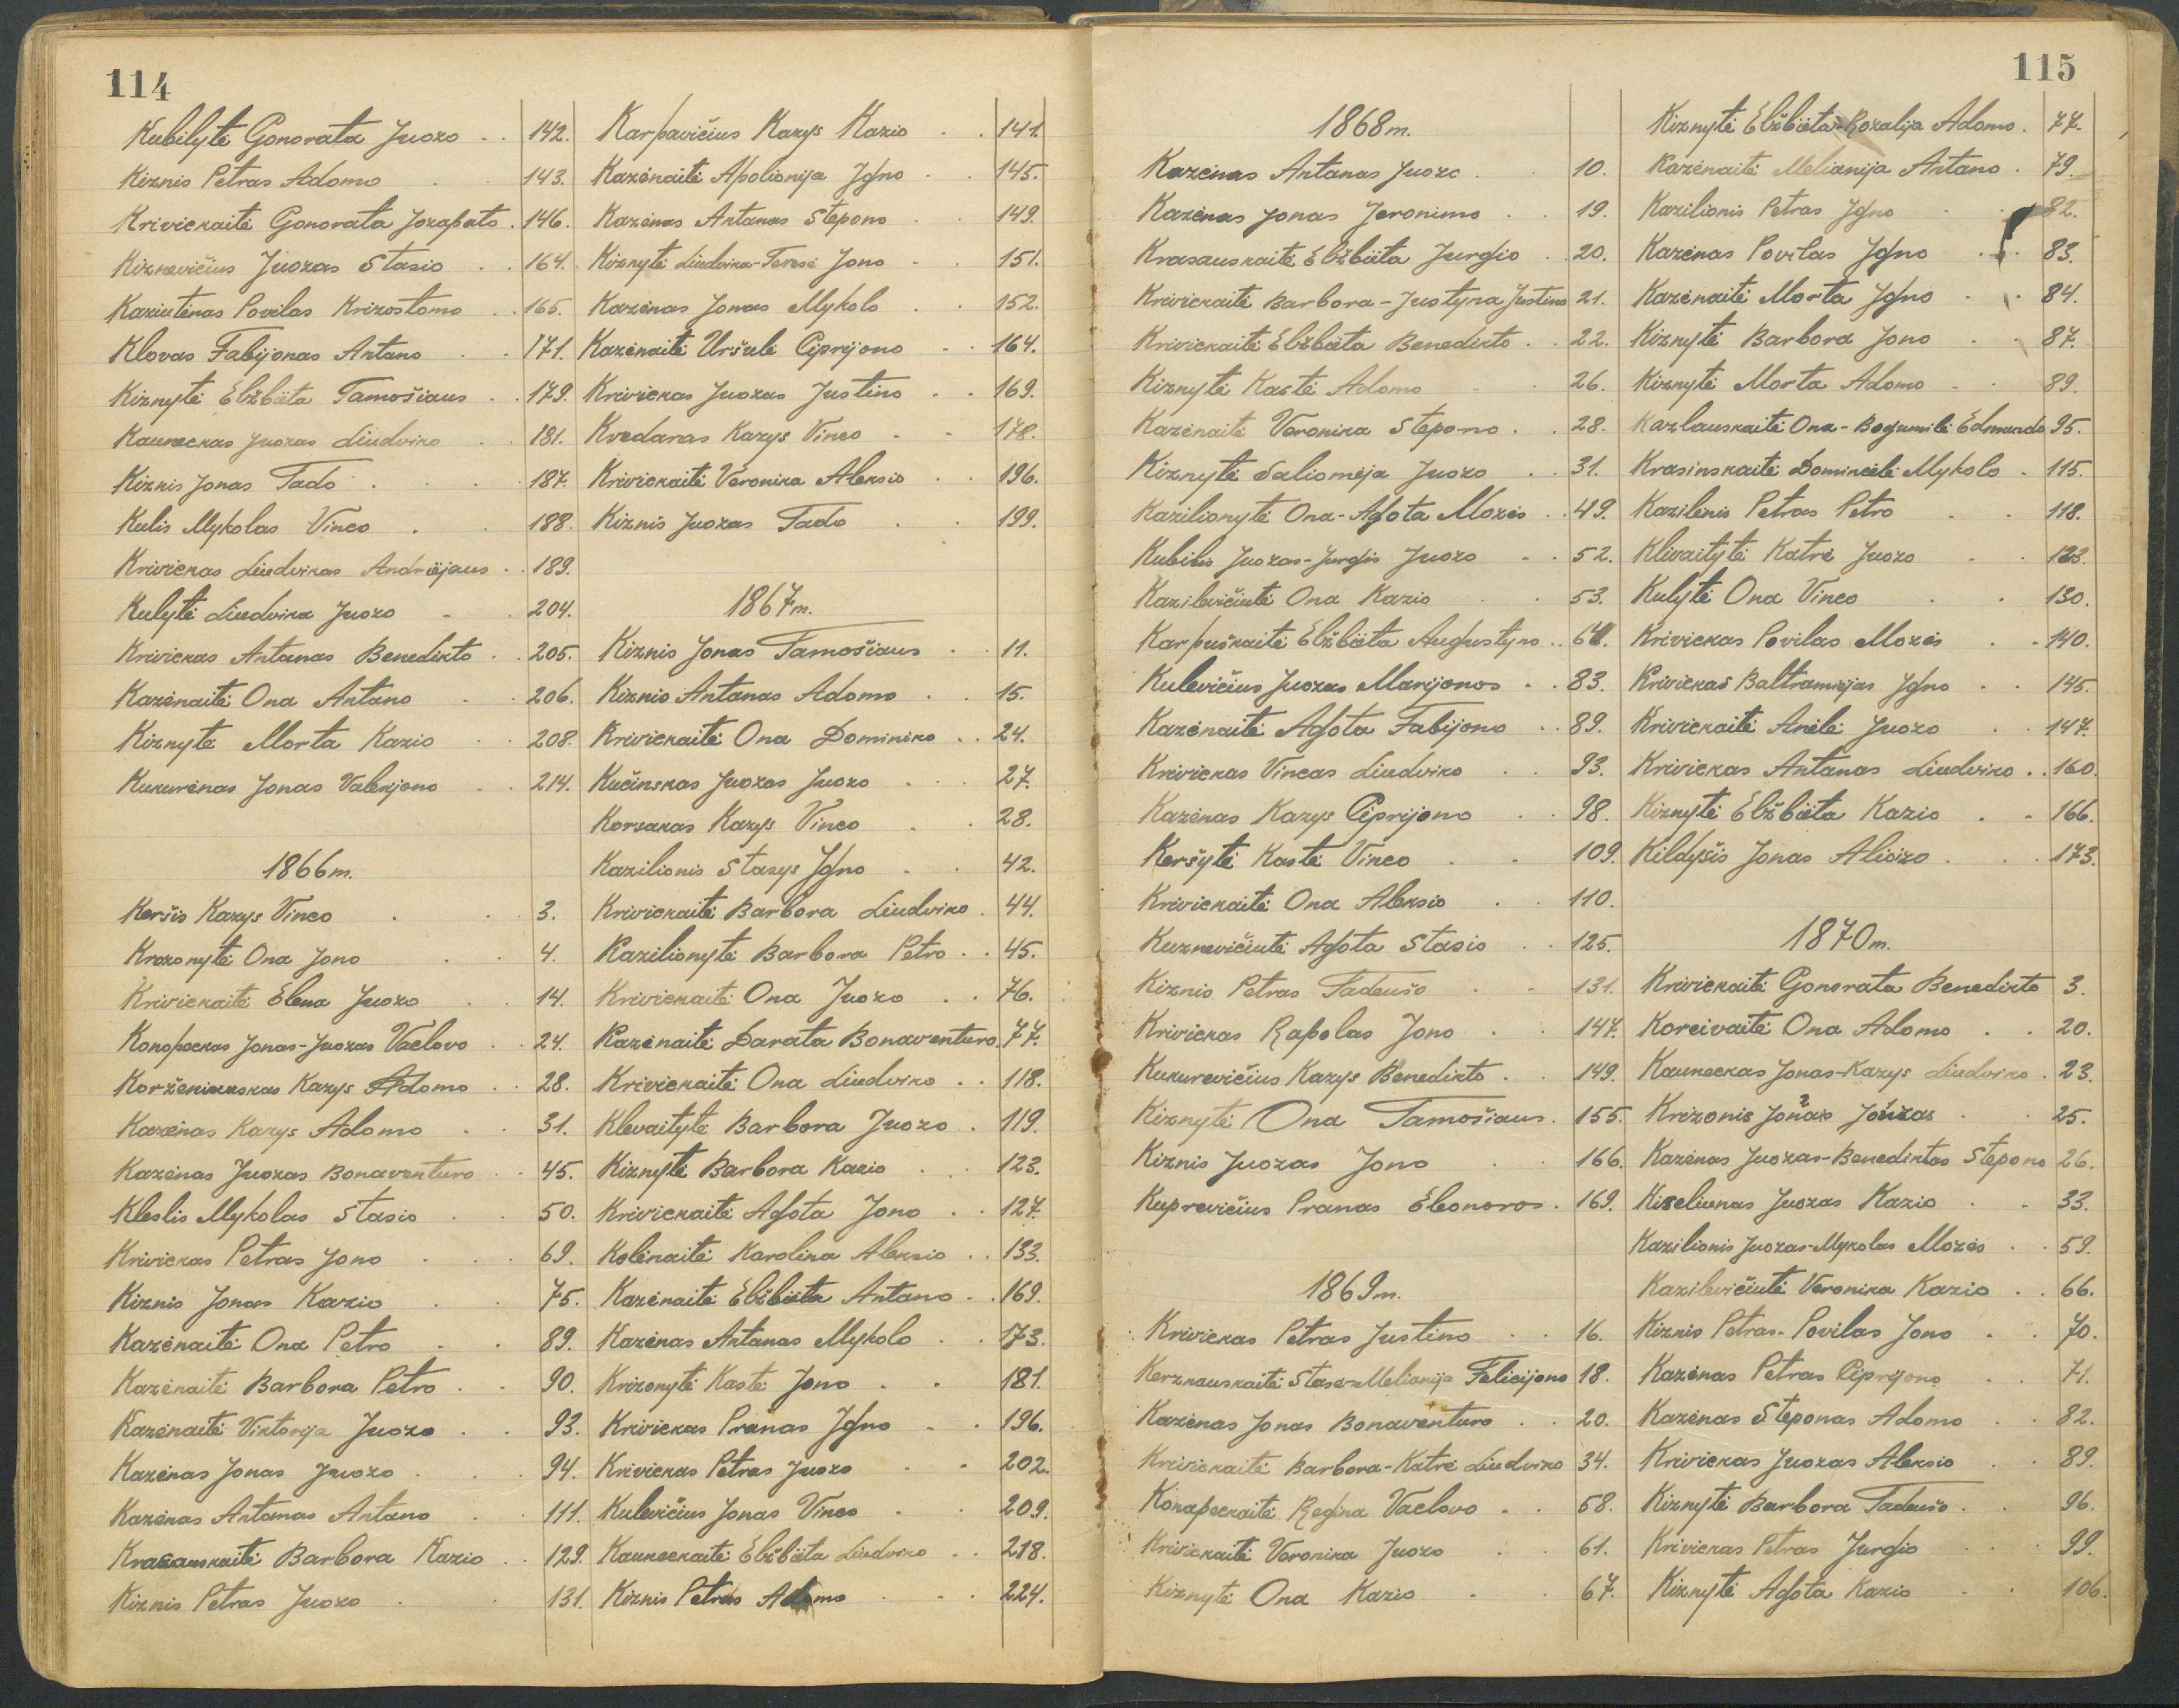 114
Kubilytė Gonorata Juozo . . 142.
Kiznis Petras Adomo . . 143.
Krivickaitė Gonorata Jozapato . 146.
Kiznevičius Juozas Stasio . . 164.
Kaziutėnas Povilas Krizostomo . . 165.
Klovas Fabijonas Antano . . 171.
Kiznytė Elžbieta Tamošiaus . . 179.
Kauneckas Juozas Liudviko . . 181.
Kiznis Jonas Tado . . . 187.
Kulis Mykolas Vinco . . 188.
Krivickas Liudvikas Andriejaus . . 189.
Kulytė Liudvika Juozo . . 204.
Krivickas Antanas Benedikto . . 205.
Kazėnaitė Ona Antano . . 206.
Kiznytė Morta Kazio . . 208.
Kukurėnas Jonas Valerijono . . 214.
1866 m.
Keršis Kazys Vinco . . . 3.
Krizonytė Ona Jono . . 4.
Krivickaitė Elena Juozo . . 14.
Konopackas Jonas-Juozas Vaclovo . . 24.
Korženiauskas Kazys Adomo . . 28.
Kazėnas Kazys Adomo . . 31.
Kazėnas Juozas Bonaventuro . . 45.
Kleslis Mykolas Stasio . . 50.
Krivickas Petras Jono . . . 69.
Kiznis Jonas Kazio . . 75.
Kazėnaitė Ona Petro . . 89.
Kazėnaitė Barbora Petro . . 90.
Kazėnaitė Viktorija Juozo . . 93.
Kazėnas Jonas Juozo . . . 94.
Kazėnas Antanas Antano . . 111.
Krasauskaitė Barbora Kazio . . 129.
Kiznis Petras Juozo . . 131.
Karpavičius Kazys Kazio . . 141.
Kazėnaitė Apolionija Igno . . 145.
Kazėnas Antanas Stepono . . 149.
Kiznytė Liudvika-Teresė Jono . . 151.
Kazėnas Jonas Mykolo . . 152.
Kazėnaitė Uršulė Ciprijono . . 164.
Krivickas Juozas Justino . . 169.
Kvedaras Kazys Vinco . . 178.
Krivickaitė Veronika Aleksio . . 196.
Kiznis Juozas Tado . . 199.
1867 m.
Kiznis Jonas Tamošiaus . . 11.
Kiznis Antanas Adomo . . 15.
Krivickaitė Ona Dominiko . . 24.
Kučinskas Juozas Juozo . . 27.
Korsakas Kazys Vinco . . 28.
Kazilionis Stasys Igno . . 42.
Krivickaitė Barbora Liudviko . 44.
Kazilionytė Barbora Petro . . 45.
Krivickaitė Ona Juozo . . 76.
Kazėnaitė Darata Bonaventuro . 77.
Krivickaitė Ona Liudviko . . 118.
Klevaitytė Barbora Juozo . 119.
Kiznytė Barbora Kazio . . 123.
Krivickaitė Agota Jono . . 127.
Kolėnaitė Karolina Aleksio . . 133.
Kazėnaitė Elžbieta Antano . . 169.
Kazėnas Antanas Mykolo . . 173.
Krizonytė Kastė Jono . . 181.
Krivickas Pranas Igno . . 196.
Krivickas Petras Juozo . . 202.
Kulevičius Jonas Vinco . . 209.
Kauneckaitė Elžbieta Liudviko . . 218.
Kiznis Petras Adomo . . . 224.
115
1868 m.
Kazėnas Antanas Juozo . . 10.
Kazėnas Jonas Jeronimo . . 19.
Krasauskaitė Elžbieta Jurgio . . 20.
Krivickaitė Barbora-Justyna Justino 21.
Krivickaitė Elžbieta Benedikto . . 22.
Kiznytė Kastė Adomo . . 26.
Kazėnaitė Veronika Stepono . . 28.
Kiznytė Saliomėja Juozo . . 31.
Kazilionytė Ona-Agota Mozės . . 49.
Kubilis Juozas-Jurgis Juozo . . 52.
Kazilevičiutė Ona Kazio . . 53.
Karpuškaitė Elžbieta Augustyno . . 61.
Kulevičius Juozas Marijonos . . 83.
Kazėnaitė Agota Fabijono . . 89.
Krivickas Vincas Liudviko . . 93.
Kazėnas Kazys Ciprijono . . 98.
Keršytė Kastė Vinco . . 109.
Krivickaitė Ona Aleksio . . 110.
Kuznevičiutė Agota Stasio . . 125.
Kiznis Petras Tadeušo . . 131.
Krivickas Rapolas Jono . . 147.
Kukurevičius Kazys Benedikto . . 149.
Kiznytė Ona Tamošiaus . 155.
Kiznis Juozas Jono . . 166.
Kuprevičius Pranas Eleonoros . 169.
1869 m.
Krivickas Petras Justino . . 16.
Kerznauskaitė Stasė-Melianija Felicijono 18.
Kazėnas Jonas Bonaventuro . . 20.
Krivickaitė Barbora-Katrė Liudviko 34.
Konapeckaitė Regina Vaclovo . . 58.
Krivickaitė Veronika Juozo . . 61.
Kiznytė Ona Kazio . . 67.
Kiznytė Elžbieta-Rozalija Adomo . 77.
Kazėnaitė Melianija Antano . 79.
Kazilionis Petras Igno . . 82.
Kazėnas Povilas Igno . . 83.
Kazėnaitė Morta Igno . . 84.
Kiznytė Barbora Jono . . 87.
Kiznytė Morta Adomo . . 89.
Kazlauskaitė Ona-Bogumilė Edmundo 95.
Krasinskaitė Domincėlė Mykolo . 115.
Kazilėnis Petras Petro . . 118.
Klivaitytė Katrė Juozo . . 123.
Kulytė Ona Vinco . . 130.
Krivickas Povilas Mozės . . 140.
Krivickas Baltramiejas Igno . . 145.
Krivickaitė Anelė Juozo . . 147.
Krivickas Antanas Liudviko . . 160.
Kiznytė Elžbieta Kazio . . 166.
Kildyšis Jonas Alioizo . . . 173.
1870 m.
Krivickaitė Gonorata Benedikto 3.
Korcivaitė Ona Adomo . . 20.
Kauneckas Jonas-Kazys Liudviko . 23.
Krizonis Jonas Juozas . . 25.
Kazėnas Juozas-Benediktas Stepono 26.
Kiseliunas Juozas Kazio . . 33.
Kazilionis Juozas-Mykolas Mozės . . 59.
Kazilevičiutė Veronika Kazio . . 66.
Kiznis Petras-Povilas Jono . . 70.
Kazėnas Petras Ciprijono . . 71.
Kazėnas Steponas Adomo . . 82.
Krivickas Juozas Aleksio . . 89.
Kiznytė Barbora Tadeušo . . 96.
Krivickas Petras Jurgio . . 99.
Kiznytė Agota Kazio . . 106.